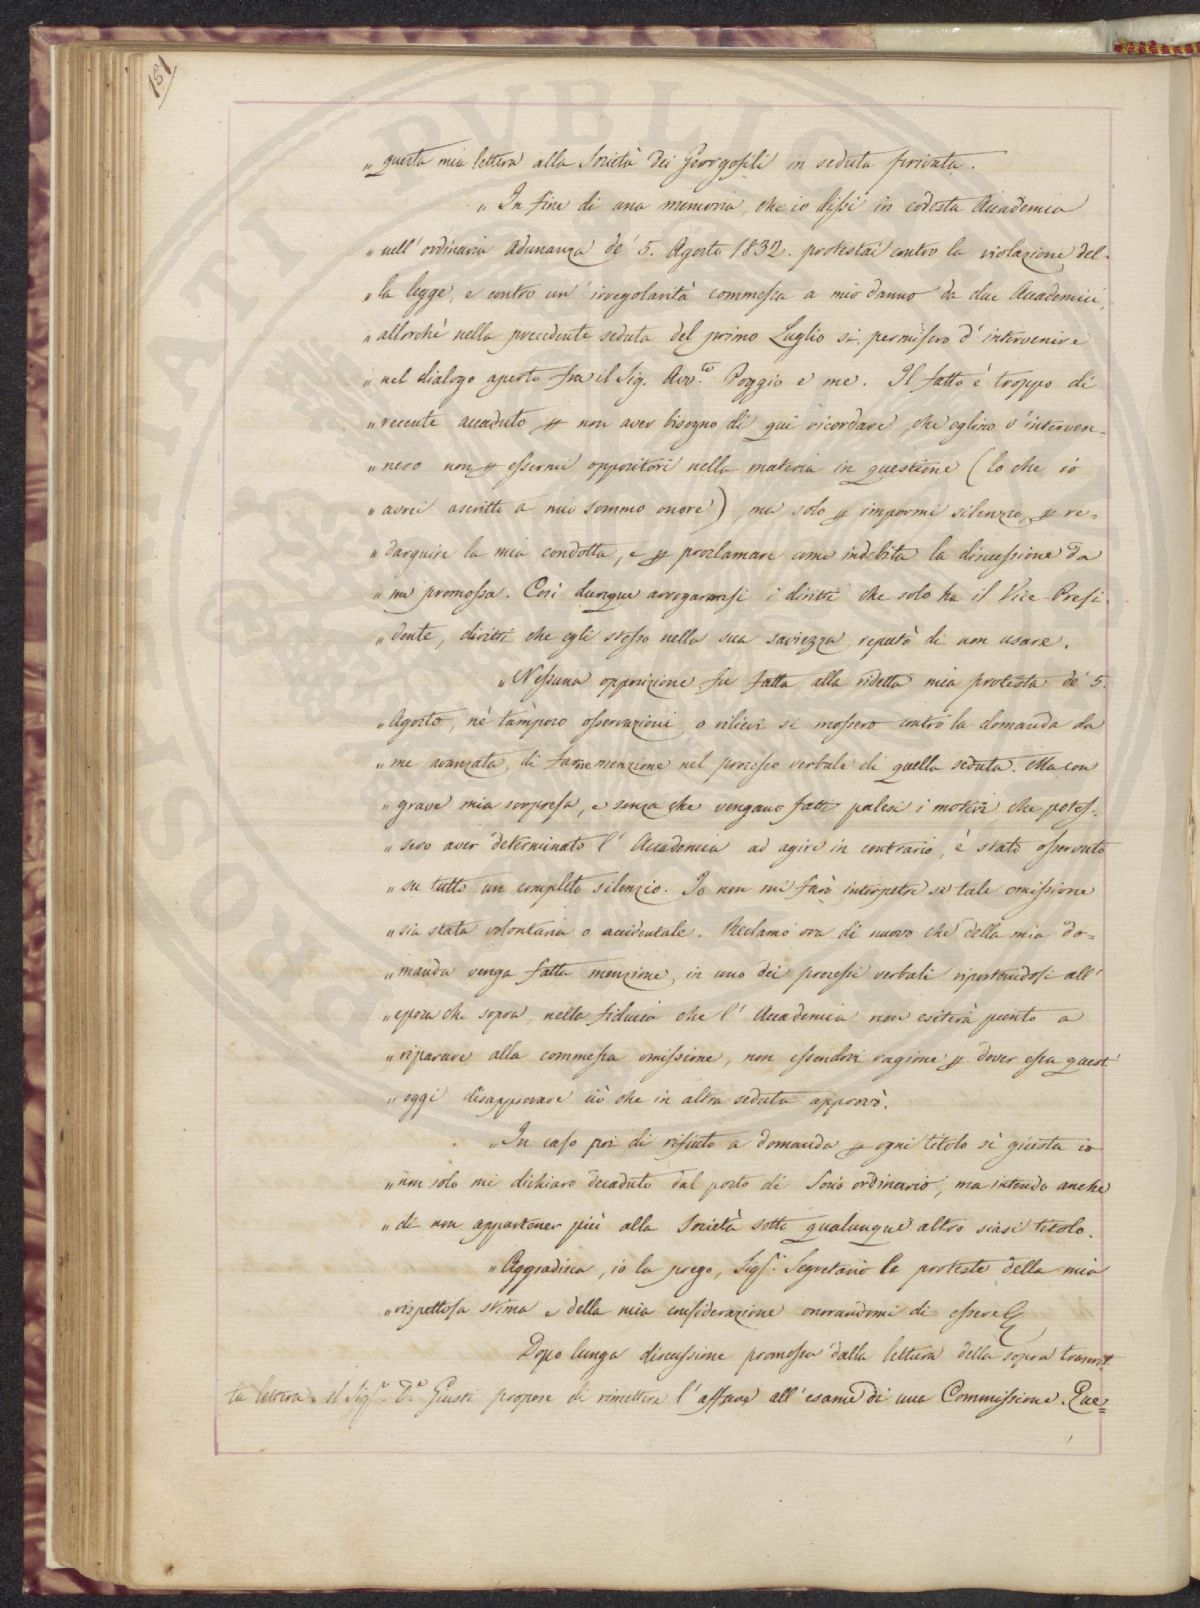 181
„ questa mia lettera alla Società dei Georgofili in seduta privata.
„ In fine di una memoria, che io dissi in codesta Accademia
„ nell' ordinaria adunanza de' 5. Agosto 1832. protestai contro la violazione del-
„ la legge, e contro un' irregolarità commessa a mio danno da due Accademici,
„ allorchè nella precedente seduta del primo Luglio si permisero d' intervenire
„ nel dialogo aperto fra il Sig. Avv.to Poggio e me. Il fatto è troppo di
„ recente accaduto p non aver bisogno di qui ricordare, che eglino v' interven=
„ nero non p essermi oppositori nella materia in questione (lo che io
„ avrei ascritto a mio sommo onore), ma solo p impormi silenzio, p re=
„ darguire la mia condotta, e p proclamare come indebita la discussione da
„ me promossa. Così dunque arrogaronsi i diritti che solo ha il Vice-Presi-
„ dente, diritti che egli stesso nella sua saviezza reputò di non usare.
„ Nessuna opposizione fu fatta alla ridetta mia protesta de' 5.
„ Agosto, nè tampoco osservazioni, o rilievi si mossero contro la domanda da
„ me avanzata, di farne menzione nel processo verbale di quella seduta. Ma con
„ grave mia sorpresa, e senza che vengano fatti palesi i motivi che potes=
„ sero aver determinato l' Accademia ad agire in contrario, è stato osservato
„ su tutto un completo silenzio. Io non mi farò interpetre se tale omissione
„ sia stata volontaria o accidentale. Reclamo ora di nuovo che della mia do=
„ manda venga fatta menzione in uno dei processi verbali riportandosi all'
„ epoca che sopra, nella fiducia che l' Accademia non esiterà punto a
„ riparare alla commessa omissione, non essendovi ragione p dover essa quest'
„ oggi disapprovare ciò che in altra seduta approvò.
„ In caso poi di rifiuto a domanda p ogni titolo sì giusta io
„ non solo mi dichiaro decaduto dal posto di Socio ordinario, ma intendo anche
„ di non appartener più alla Società sotto qualunque altro siasi titolo.
„ Aggradisca, io la prego, Sig.r Segretario le proteste della mia
„ rispettosa stima e della mia considerazione onorandomi di essere
Dopo lunga discussione promossa dalla lettura della sopra trascrit
ta lettera il Sig.r D.r Giusti propone di rimettere l' affare all' esame di una Commissione. Que=